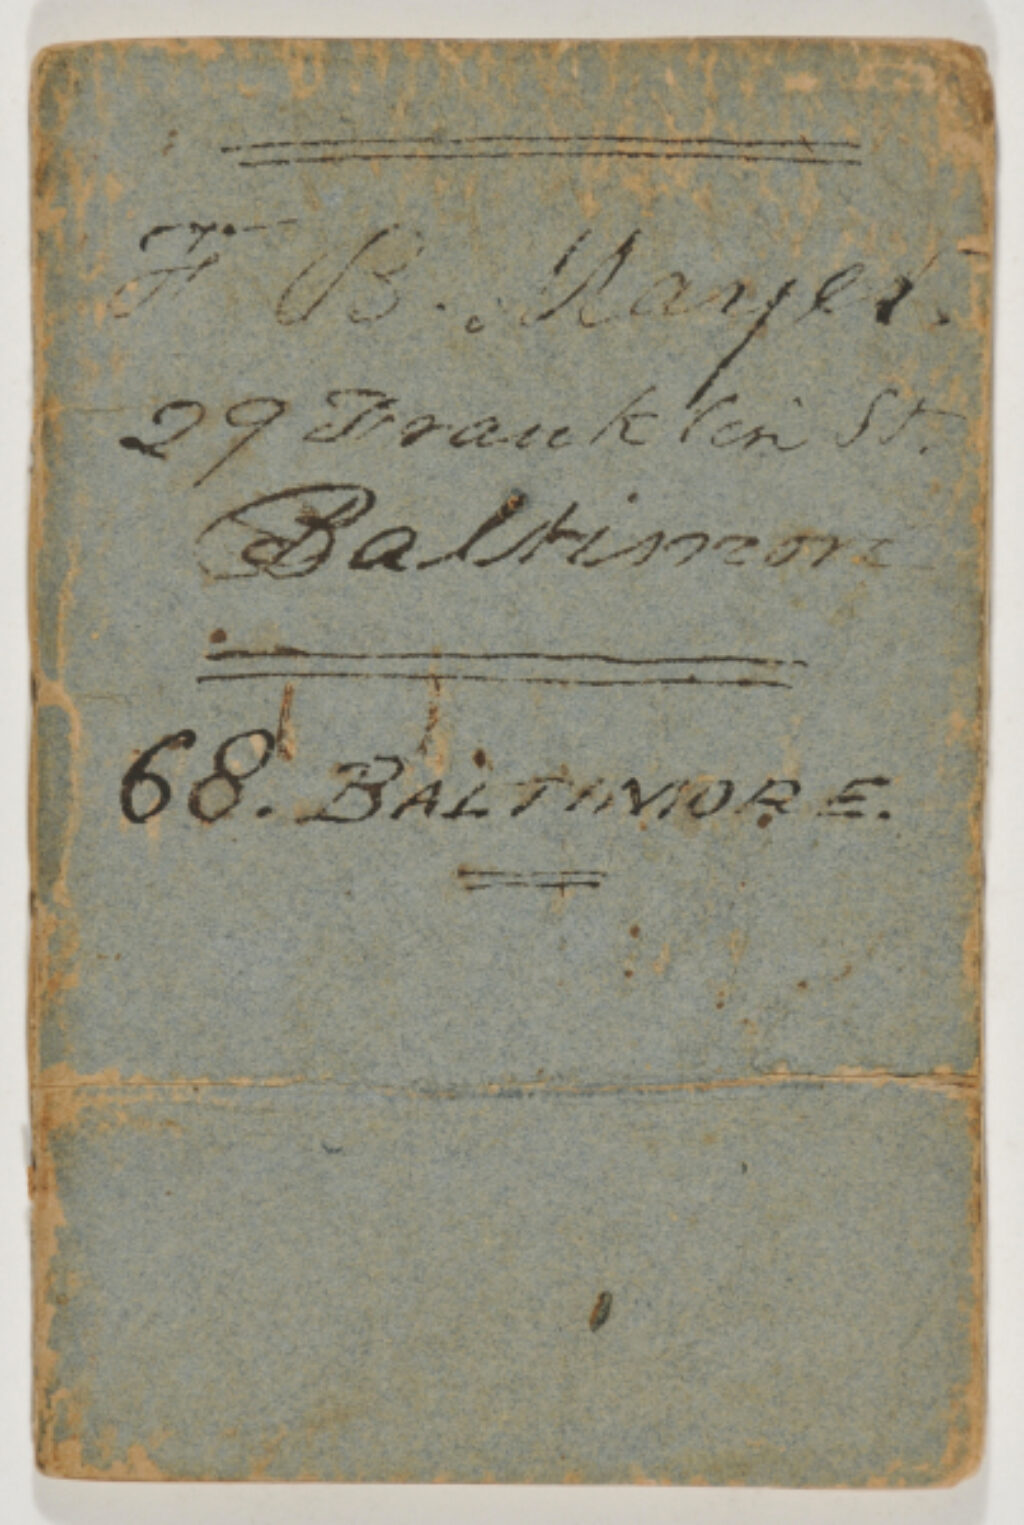 F. B. Mayer.
29 Franklin St.
Baltimore
68. BALTIMORE.